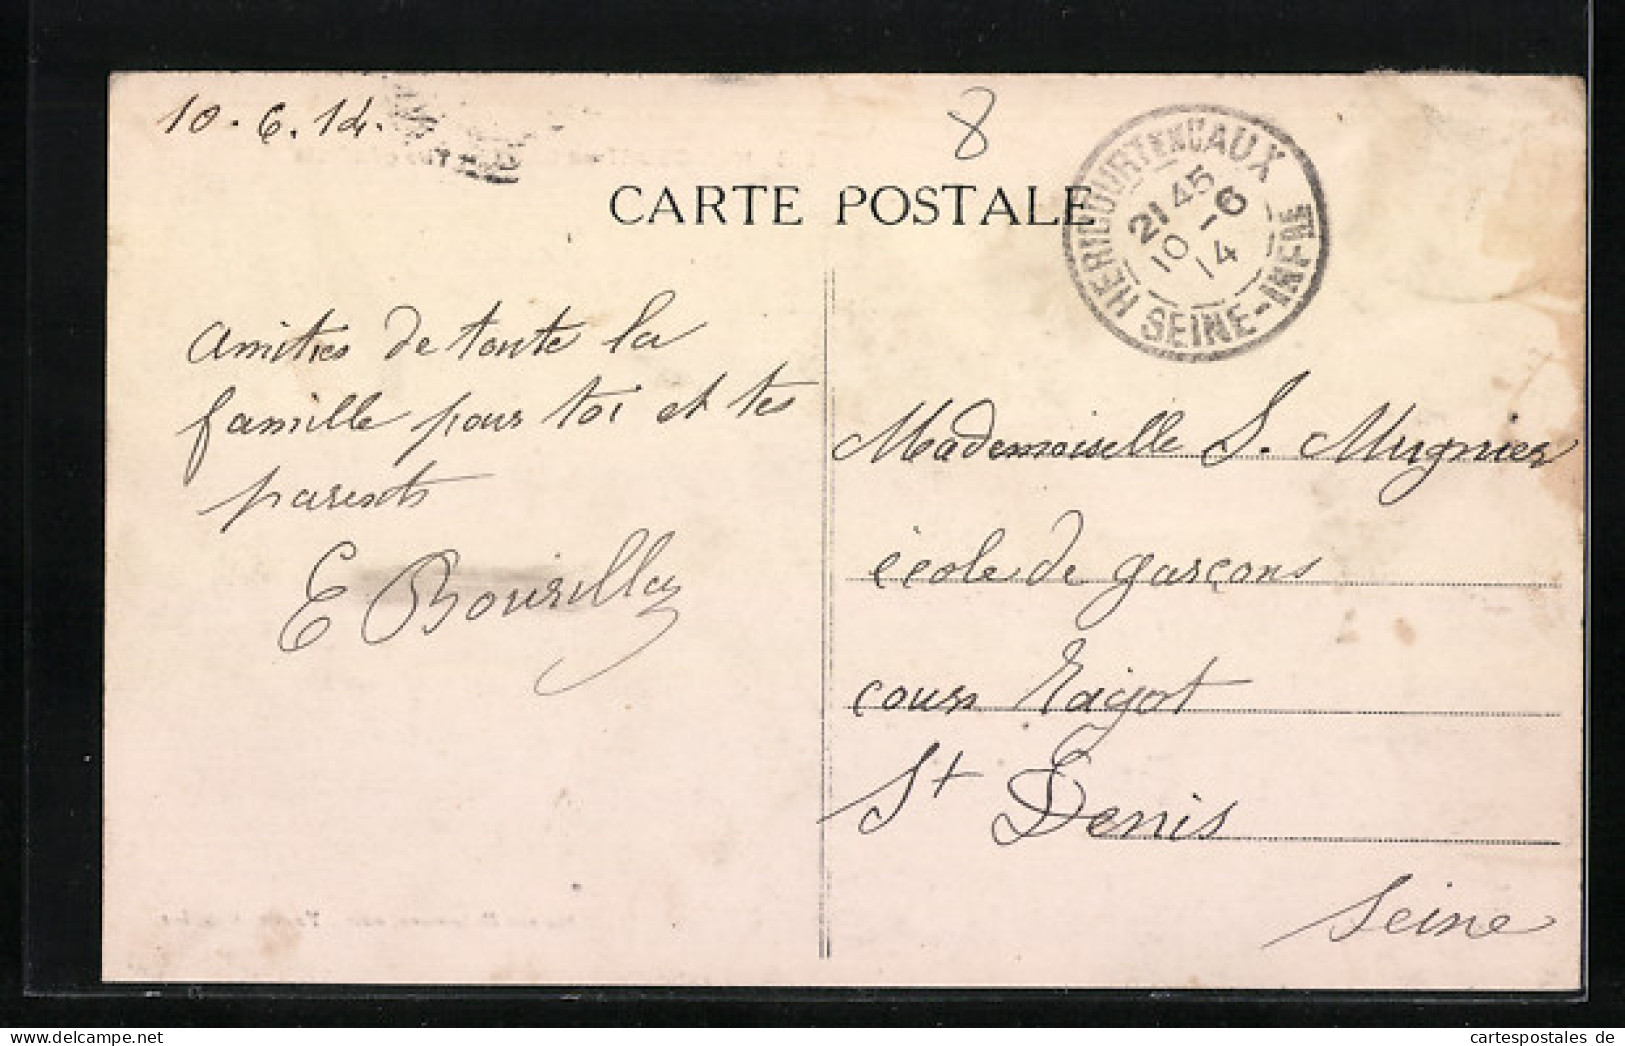 10.6.14.
8
CARTE POSTALE
HERICOURT EN CAUX
21 45
10 - 6
14
SEINE-INFRE
Amitiés de toute la
famille pour toi et tes
parents
Mademoiselle S. Mugnier
école de garçons
cours Ragot
St Denis
Seine
cartespostales de